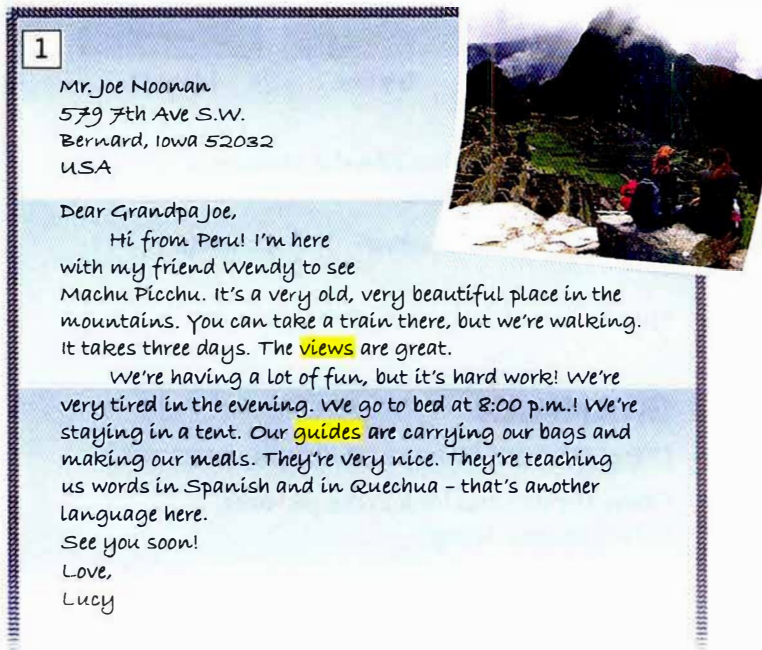 1
Mr. Joe Noonan
579 7th Ave S.W.
Bernard, Iowa 52032
USA
Dear Grandpa Joe,
Hi from Peru! I'm here
with my friend Wendy to see
Machu Picchu. It's a very old, very beautiful place in the
mountains. You can take a train there, but we're walking.
It takes three days. The views are great.
We're having a lot of fun, but it's hard work! We're
very tired in the evening. We go to bed at 8:00 p.m.! We're
staying in a tent. Our guides are carrying our bags and
making our meals. They're very nice. They're teaching
us words in Spanish and in Quechua – that's another
language here.
See you soon!
Love,
Lucy